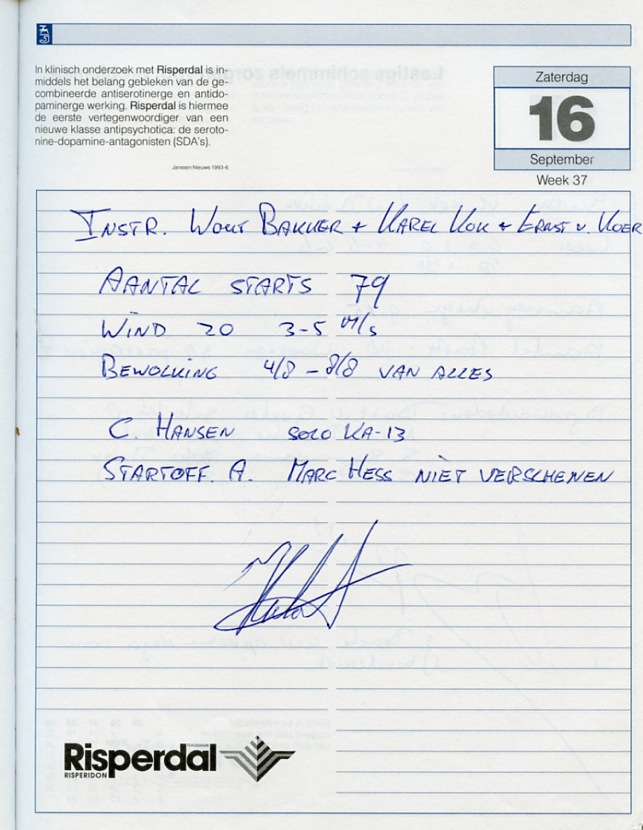 In klinisch onderzoek met Risperdal is in-
middels het belang gebleken van de ge-
combineerde antiserotinerge en antido-
paminerge werking. Risperdal is hiermee
de eerste vertegenwoordiger van een
nieuwe klasse antipsychotica: de seroto-
nine-dopamine-antagonisten (SDA's).
Janssen Nieuws 1993-6
Zaterdag
16
September
Week 37
INSTR. WOUT BAKKER + KAREL KOK + ERNST V. KOER
AANTAL STARTS 79
WIND ZO 3-5 M/s
BEWOLKING 4/8 - 8/8 VAN ALLES
C. HANSEN SOLO KA-13
STARTOFF. A. MARC HESS NIET VERSCHENEN
Risperdal
RISPERIDON